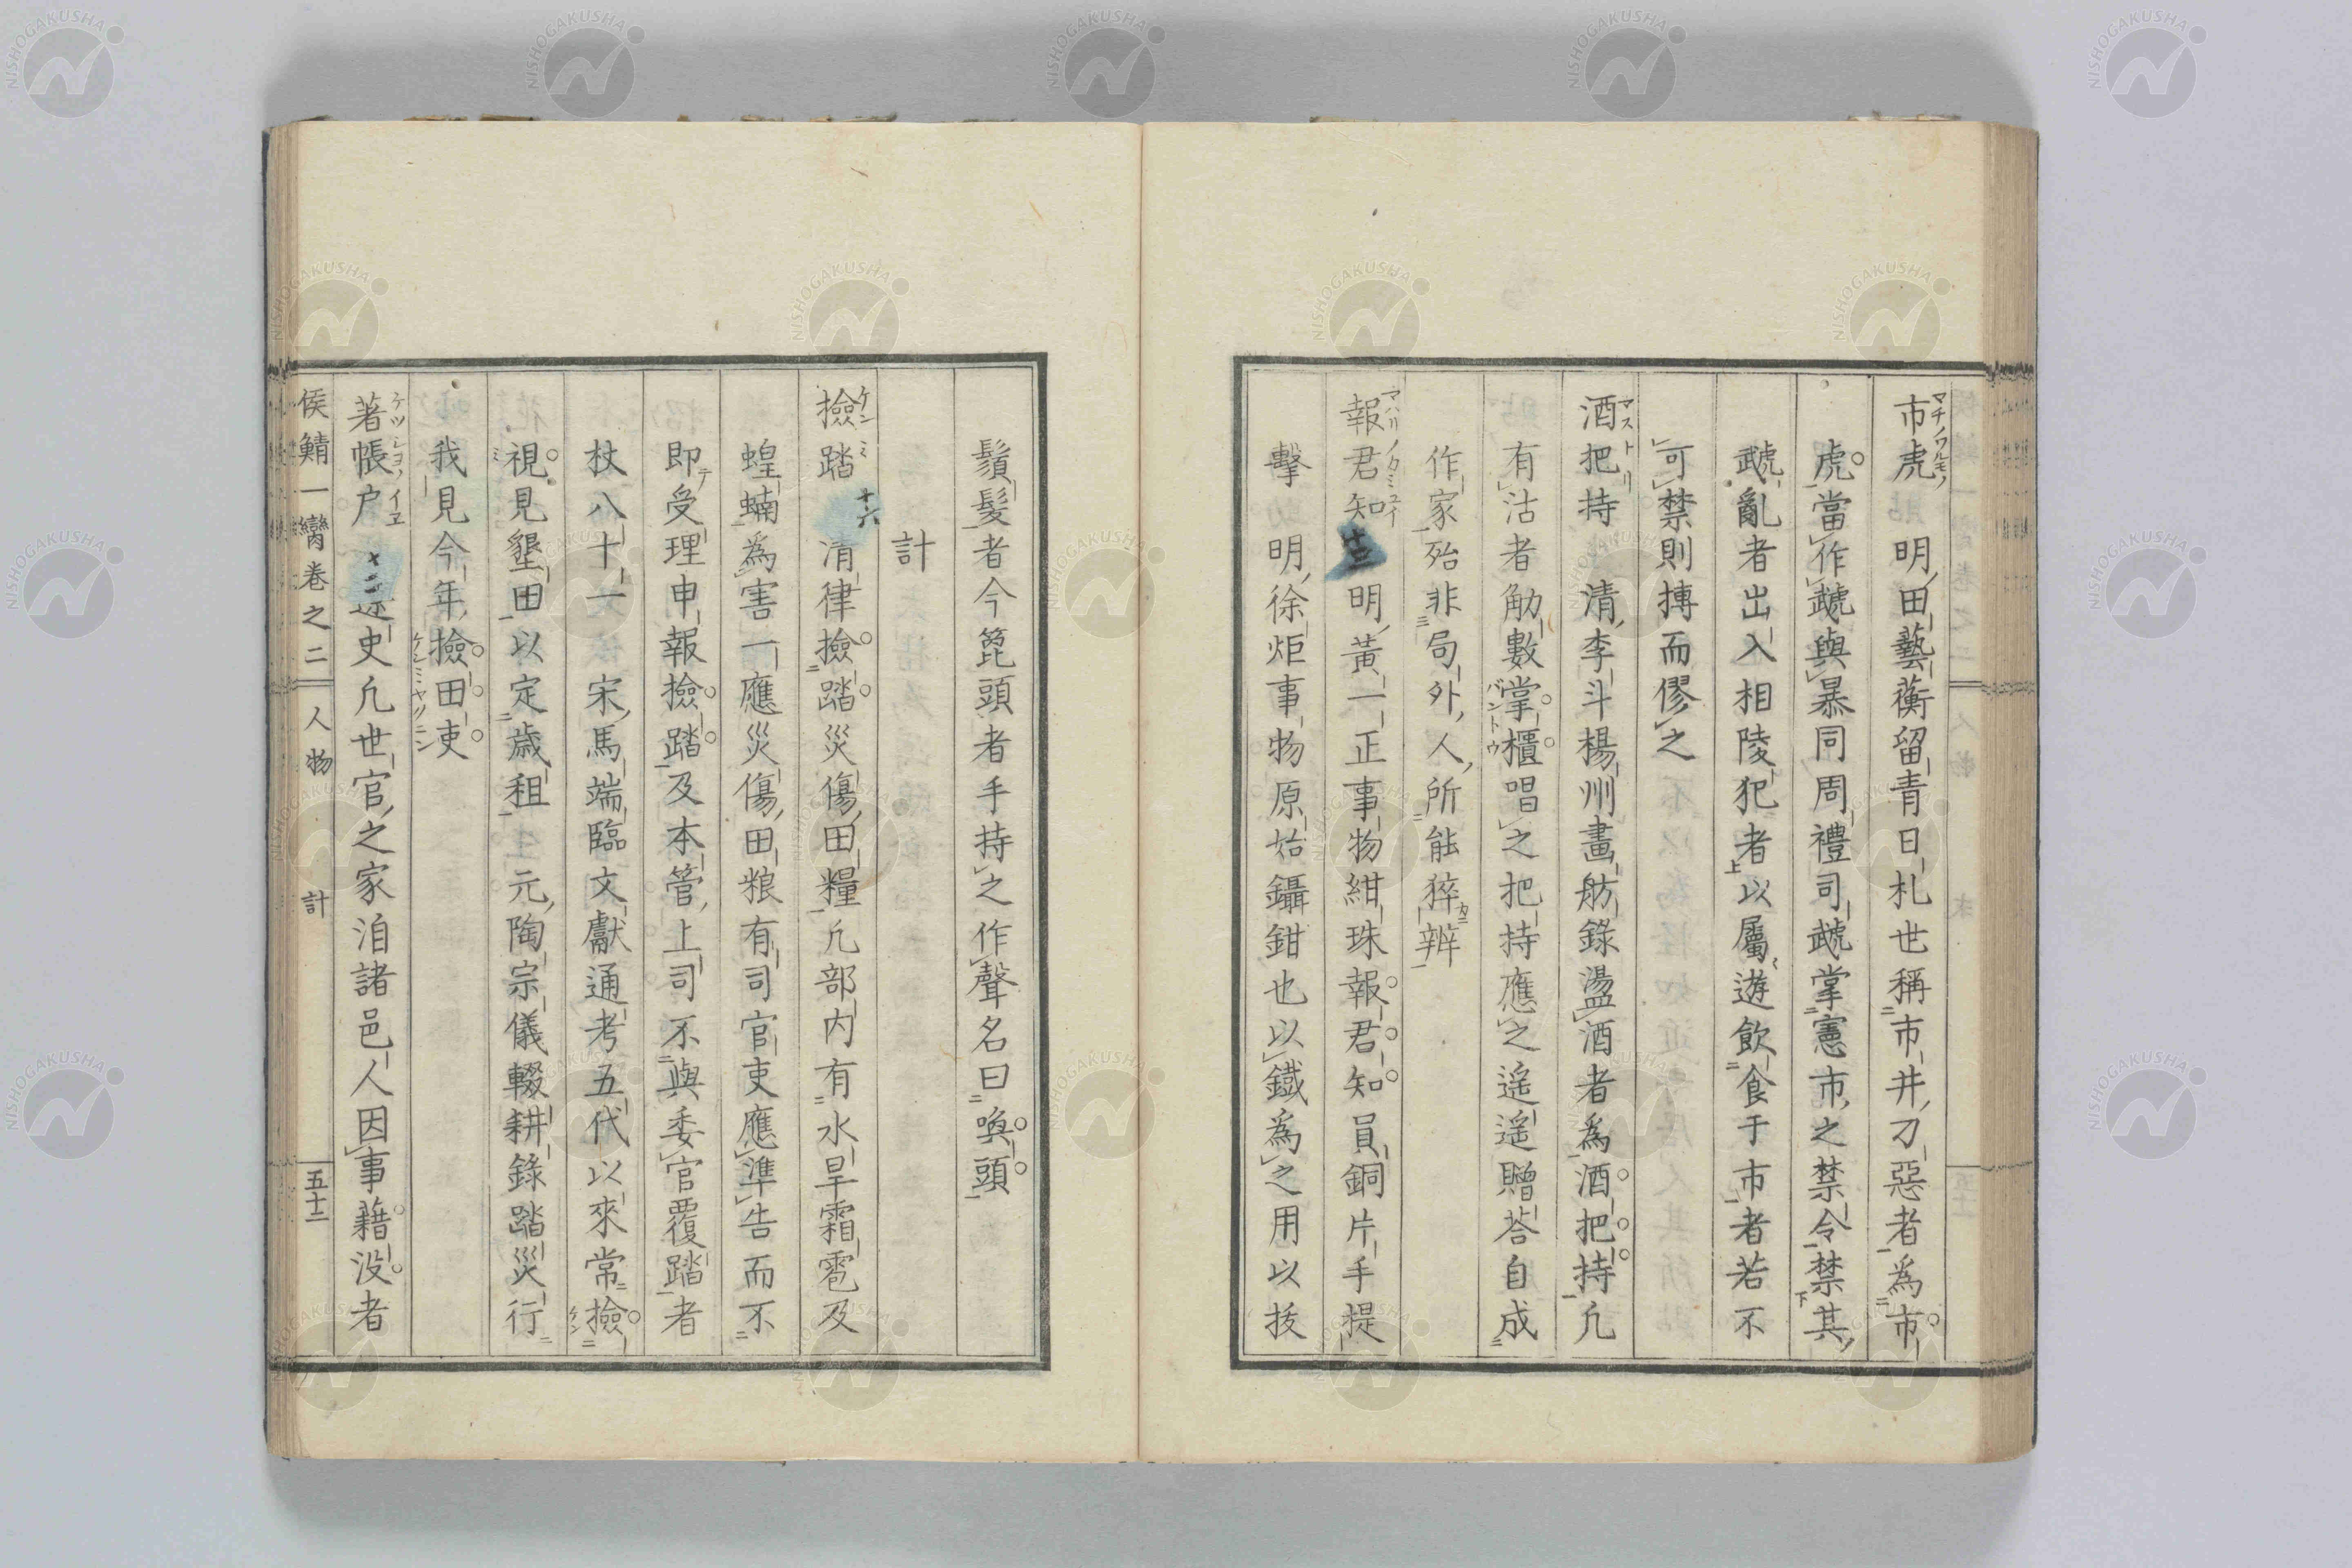 市虎 明田藝蘅留青日札世稱市井刁惡者為市
虎當作虣與暴同周禮司虣掌憲市之禁令禁其
虣亂者出入相陵犯者以屬遊飲食于市者若不
可禁則搏而僇之
酒把持 清李斗楊州畫舫錄盪酒者為酒把持凢
有沽者觔數掌櫃唱之把持應之遥遥贈荅自成
作家殆非局外人所能猝辨
報君知 十三 明黃一正事物紺珠報君知員銅片手提
擊 明徐炬事物原始鑷鉗也以鐵為之用以拔
鬚髮者今篦頭者手持之作聲名曰喚頭
計
撿踏 十六 清律撿踏災傷田糧凢部内有水旱霜雹及
蝗蝻為害一應災傷田粮有司官吏應準告而不
即受理申報撿踏及本管上司不與委官覆踏者
杖八十 宋馬端臨文獻通考五代以來常撿
視見墾田以定歳租 元陶宗儀輟耕錄踏災行
我見今年撿田吏
著帳户 十二 遼史凢世官之家洎諸邑人因事藉没者
侯鯖一臠卷之二 人物 計 五十二
マチノワルモノ
マストリ
バントウ
マハリノカミユヒ
ケンミ
ケンミヤクニン
ケツシヨノイヱ
NISHOGAKUSHA